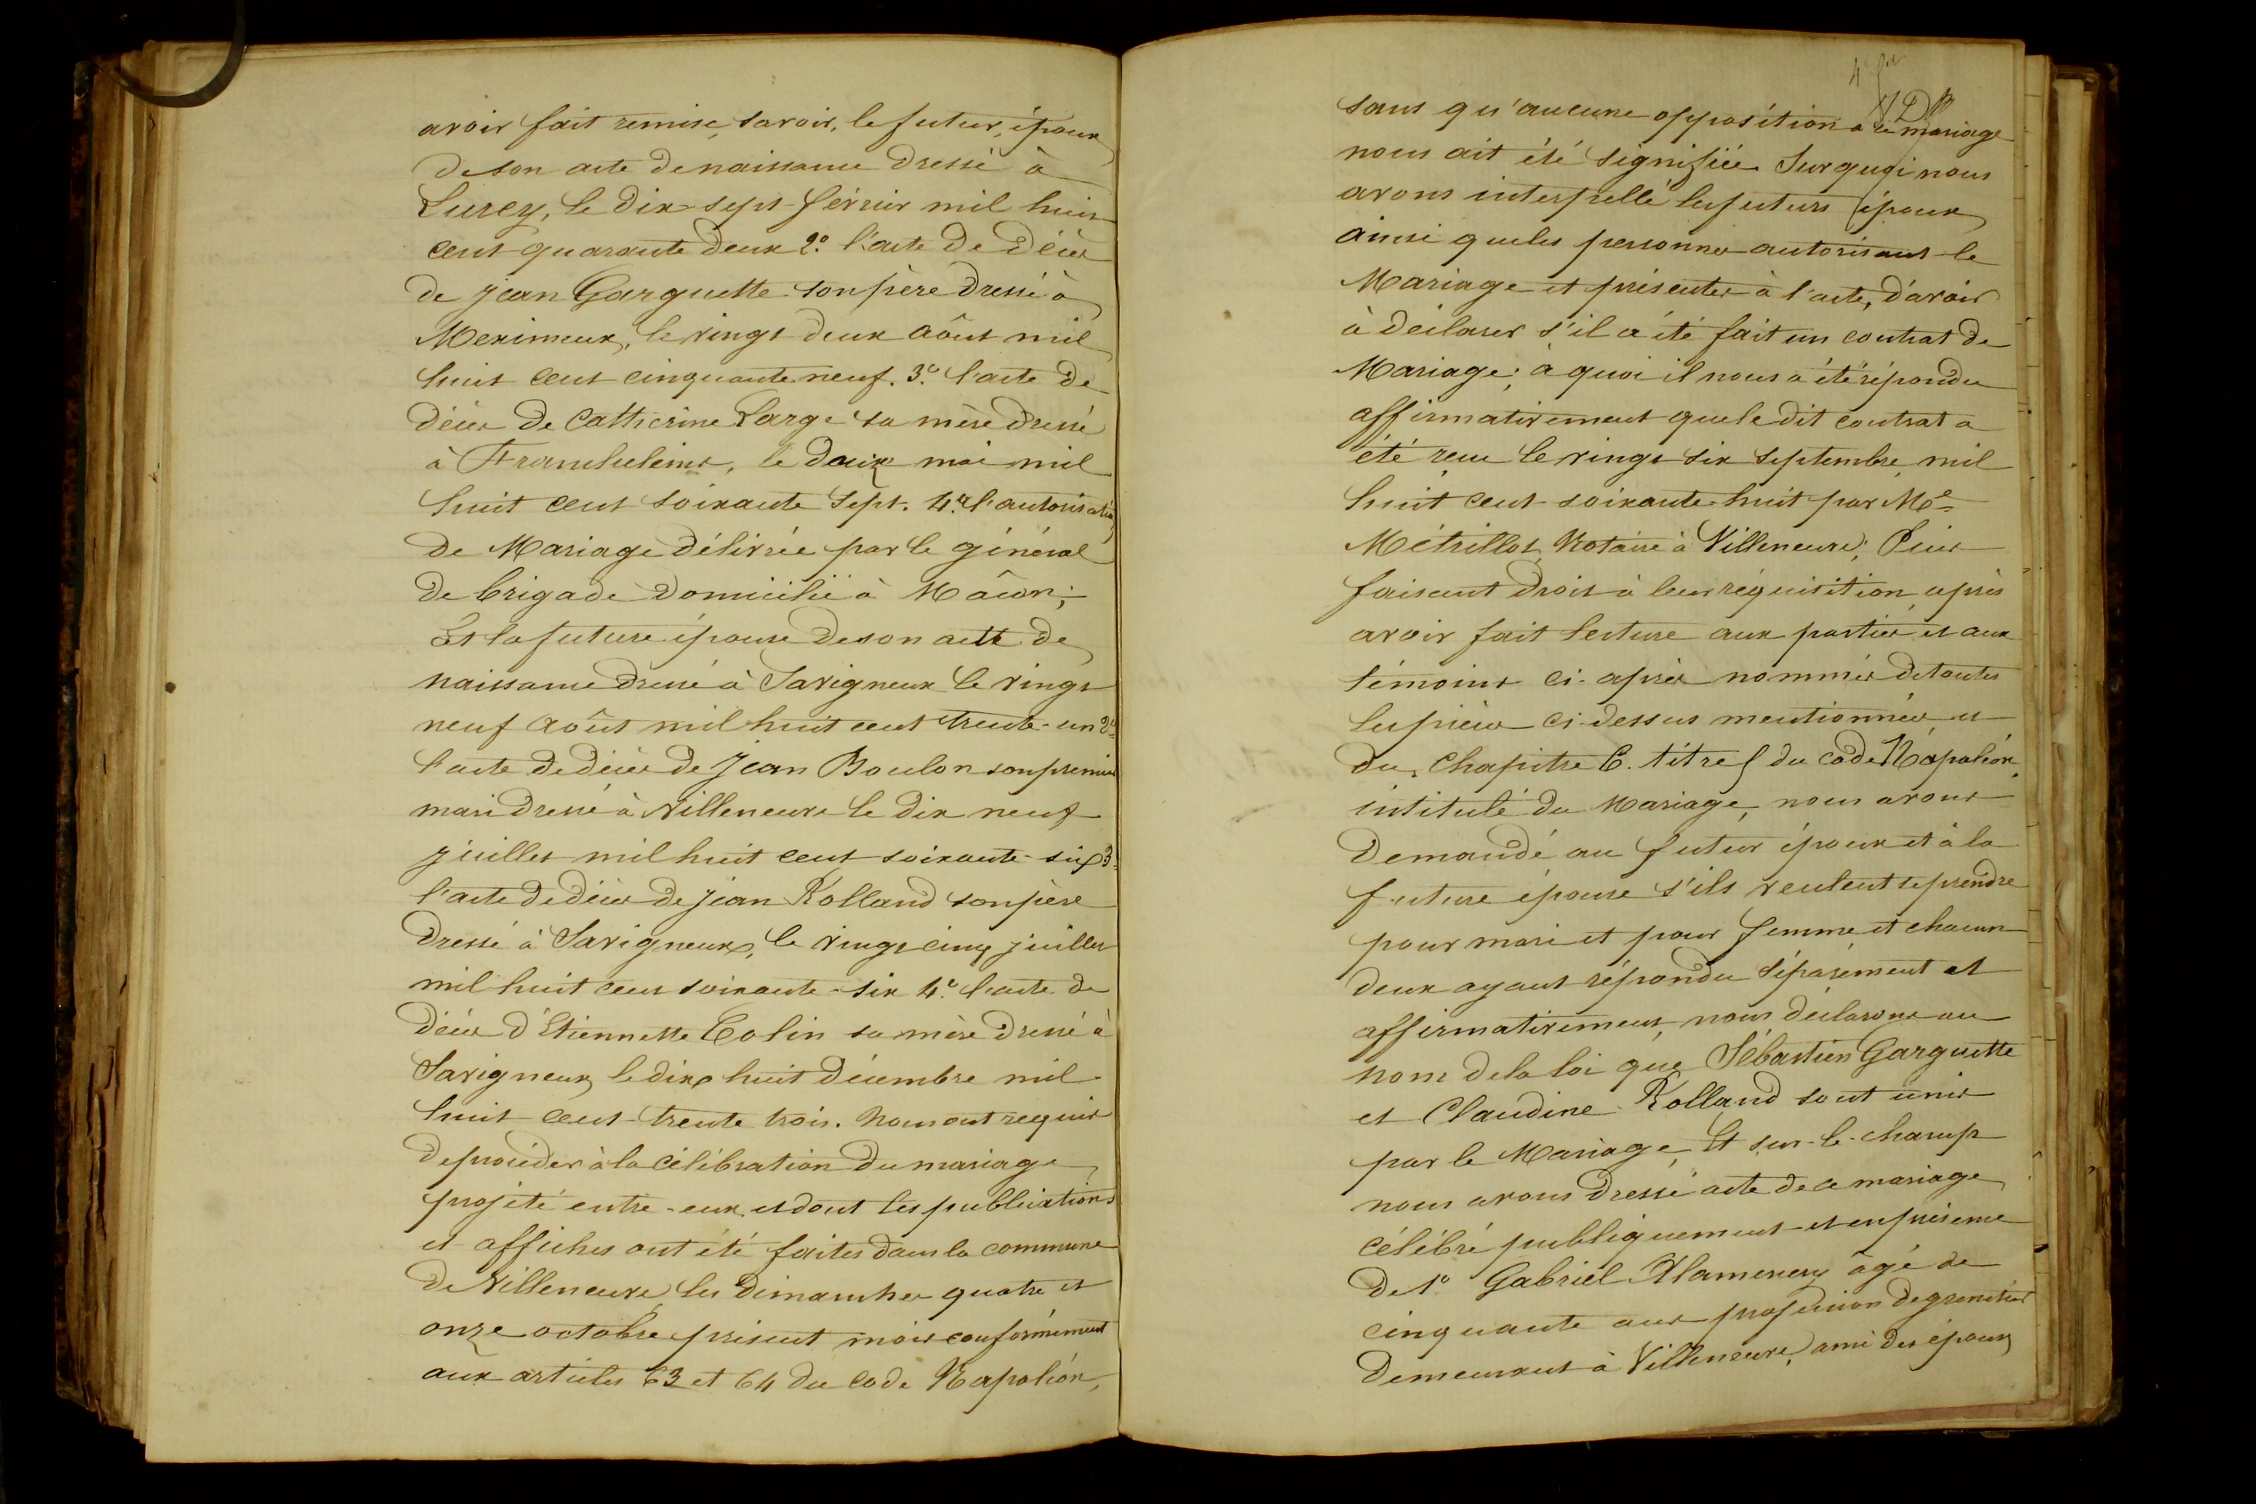 avoir fait remise, savoir, le futur, époux
de son acte de naissance dressé à
Lurcy, le dix-sept février mil huit
cent quarante deux 2.° l'acte de décès
de Jean Garguette son père dressé à
Meximeux, le vingt deux août mil
huit cent cinquante neuf. 3.° l'acte de
décès de Catherine Large sa mère dressé
à Francheleins, le mai mil
huit cent soixante sept. 4.° l'autorisation
de Mariage délivrée par le général
de brigade domicilié à Mâcon;
Et la future épouse de son acte de
naissance dressé à Savigneux le vingt
neuf août mil huit cent trente-un 2.°
l'acte de décès de Jean Boulon son premier
mari dressé à Villeneuve le dix neuf
juillet mil huit cent soixante-six 3.°
l'acte de décès de Jean Rolland son père
dressé à Savigneux, le vingt cinq juillet
mil huit cent soixante-six 4.° l'acte de
décès d'Etiennette Colin sa mère dressé à
Savigneux le dix huit décembre mil
huit cent trente trois. Nous ont requis
de procéder à la célébration du mariage
projeté entre-eux et dont les publications
et affiches ont été faites dans la commune
de Villeneuve les dimanches quatre et
onze octobre présent mois conformément
aux articles 63 et 64 du code Napoléon,
sans qu'aucune opposition à ce mariage
nous ait été signifiée. Sur quoi nous
avons interpellé les futurs époux
ainsi que les personnes autorisant le
Mariage et présentes à l'acte, d'avoir
à déclarer s'il a été fait un contrat de
Mariage; à quoi il nous a été répondu
affirmativement que le dit contrat a
été reçu le vingt six septembre mil
huit cent soixante-huit par Me
Métrillot Notaire à Villeneuve; Puis
faisant droit à leur réquisition, après
avoir fait lecture aux parties et aux
témoins ci-après nommés de toutes
les pièces ci-dessus mentionnées et
du chapitre 6. titre du code Napoléon,
intitulé du Mariage, nous avons
Demandé au futur époux et à la
future épouse s'ils veulent se prendre
pour mari et pour femme et chacun
deux ayant répondu séparément et
affirmativement, nous déclarons au
nom de la loi que Sébastien Garguette
et Claudine Rolland sont unis
par le Mariage, Et sur-le-champ
nous avons dressé acte de ce mariage
célébré publiquement et en présence
de 1.° Gabriel Alamercery âgé de
cinquante ans profession de grenetier
Demeurant à Villeneuve, ami des époux